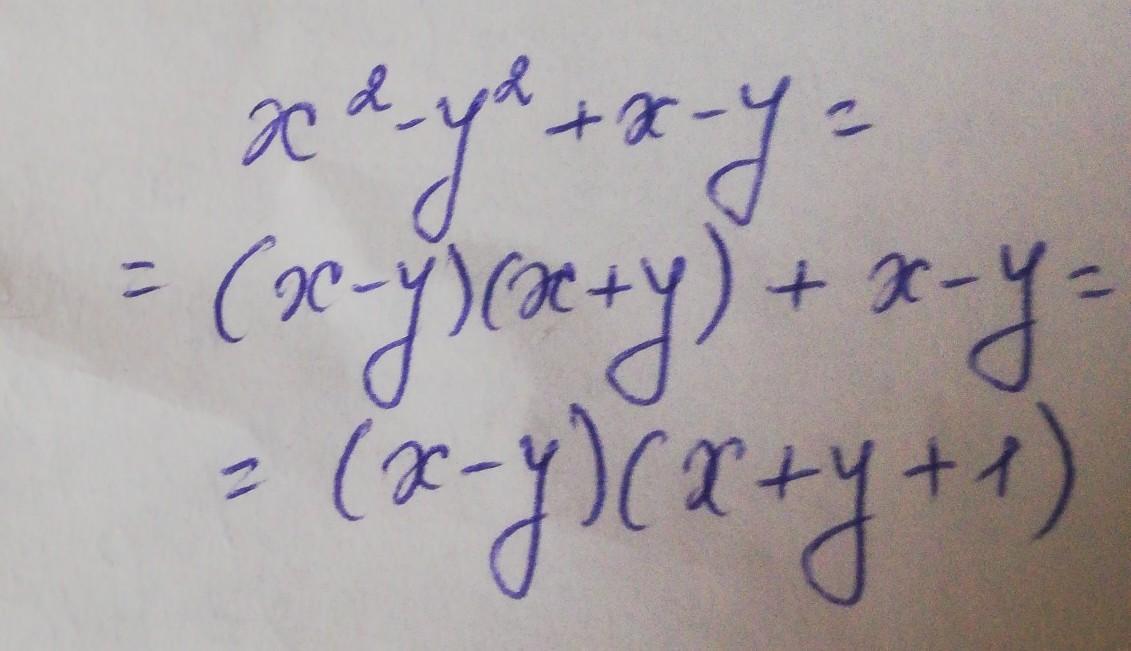 x² - y² + x - y =
= (x - y)(x + y) + x - y =
= (x - y)(x + y + 1)